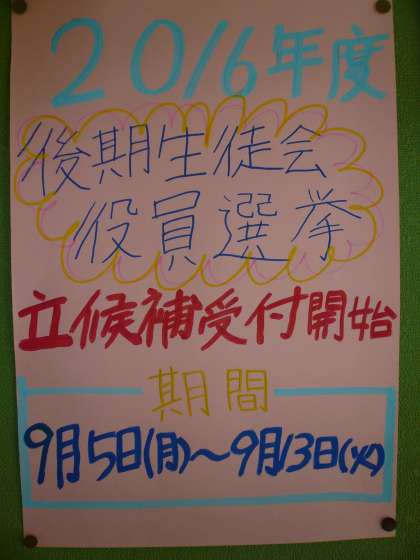 2016年度
後期生徒会
役員選挙
立候補受付開始
期間
9月5日(月)～9月13日(火)